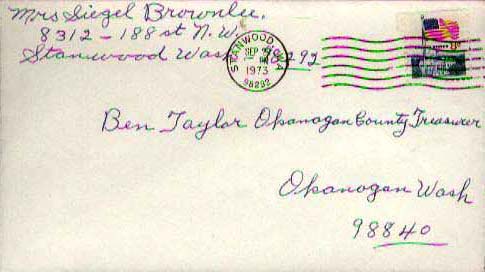 Mrs Siegel Brownlee.
8312 - 188 st N.W.
Stanwood Wash 292
STANWOOD, WA
SEP
1973
98292
Ben Taylor Okanogan County Treasurer
Okanogan Wash
98840